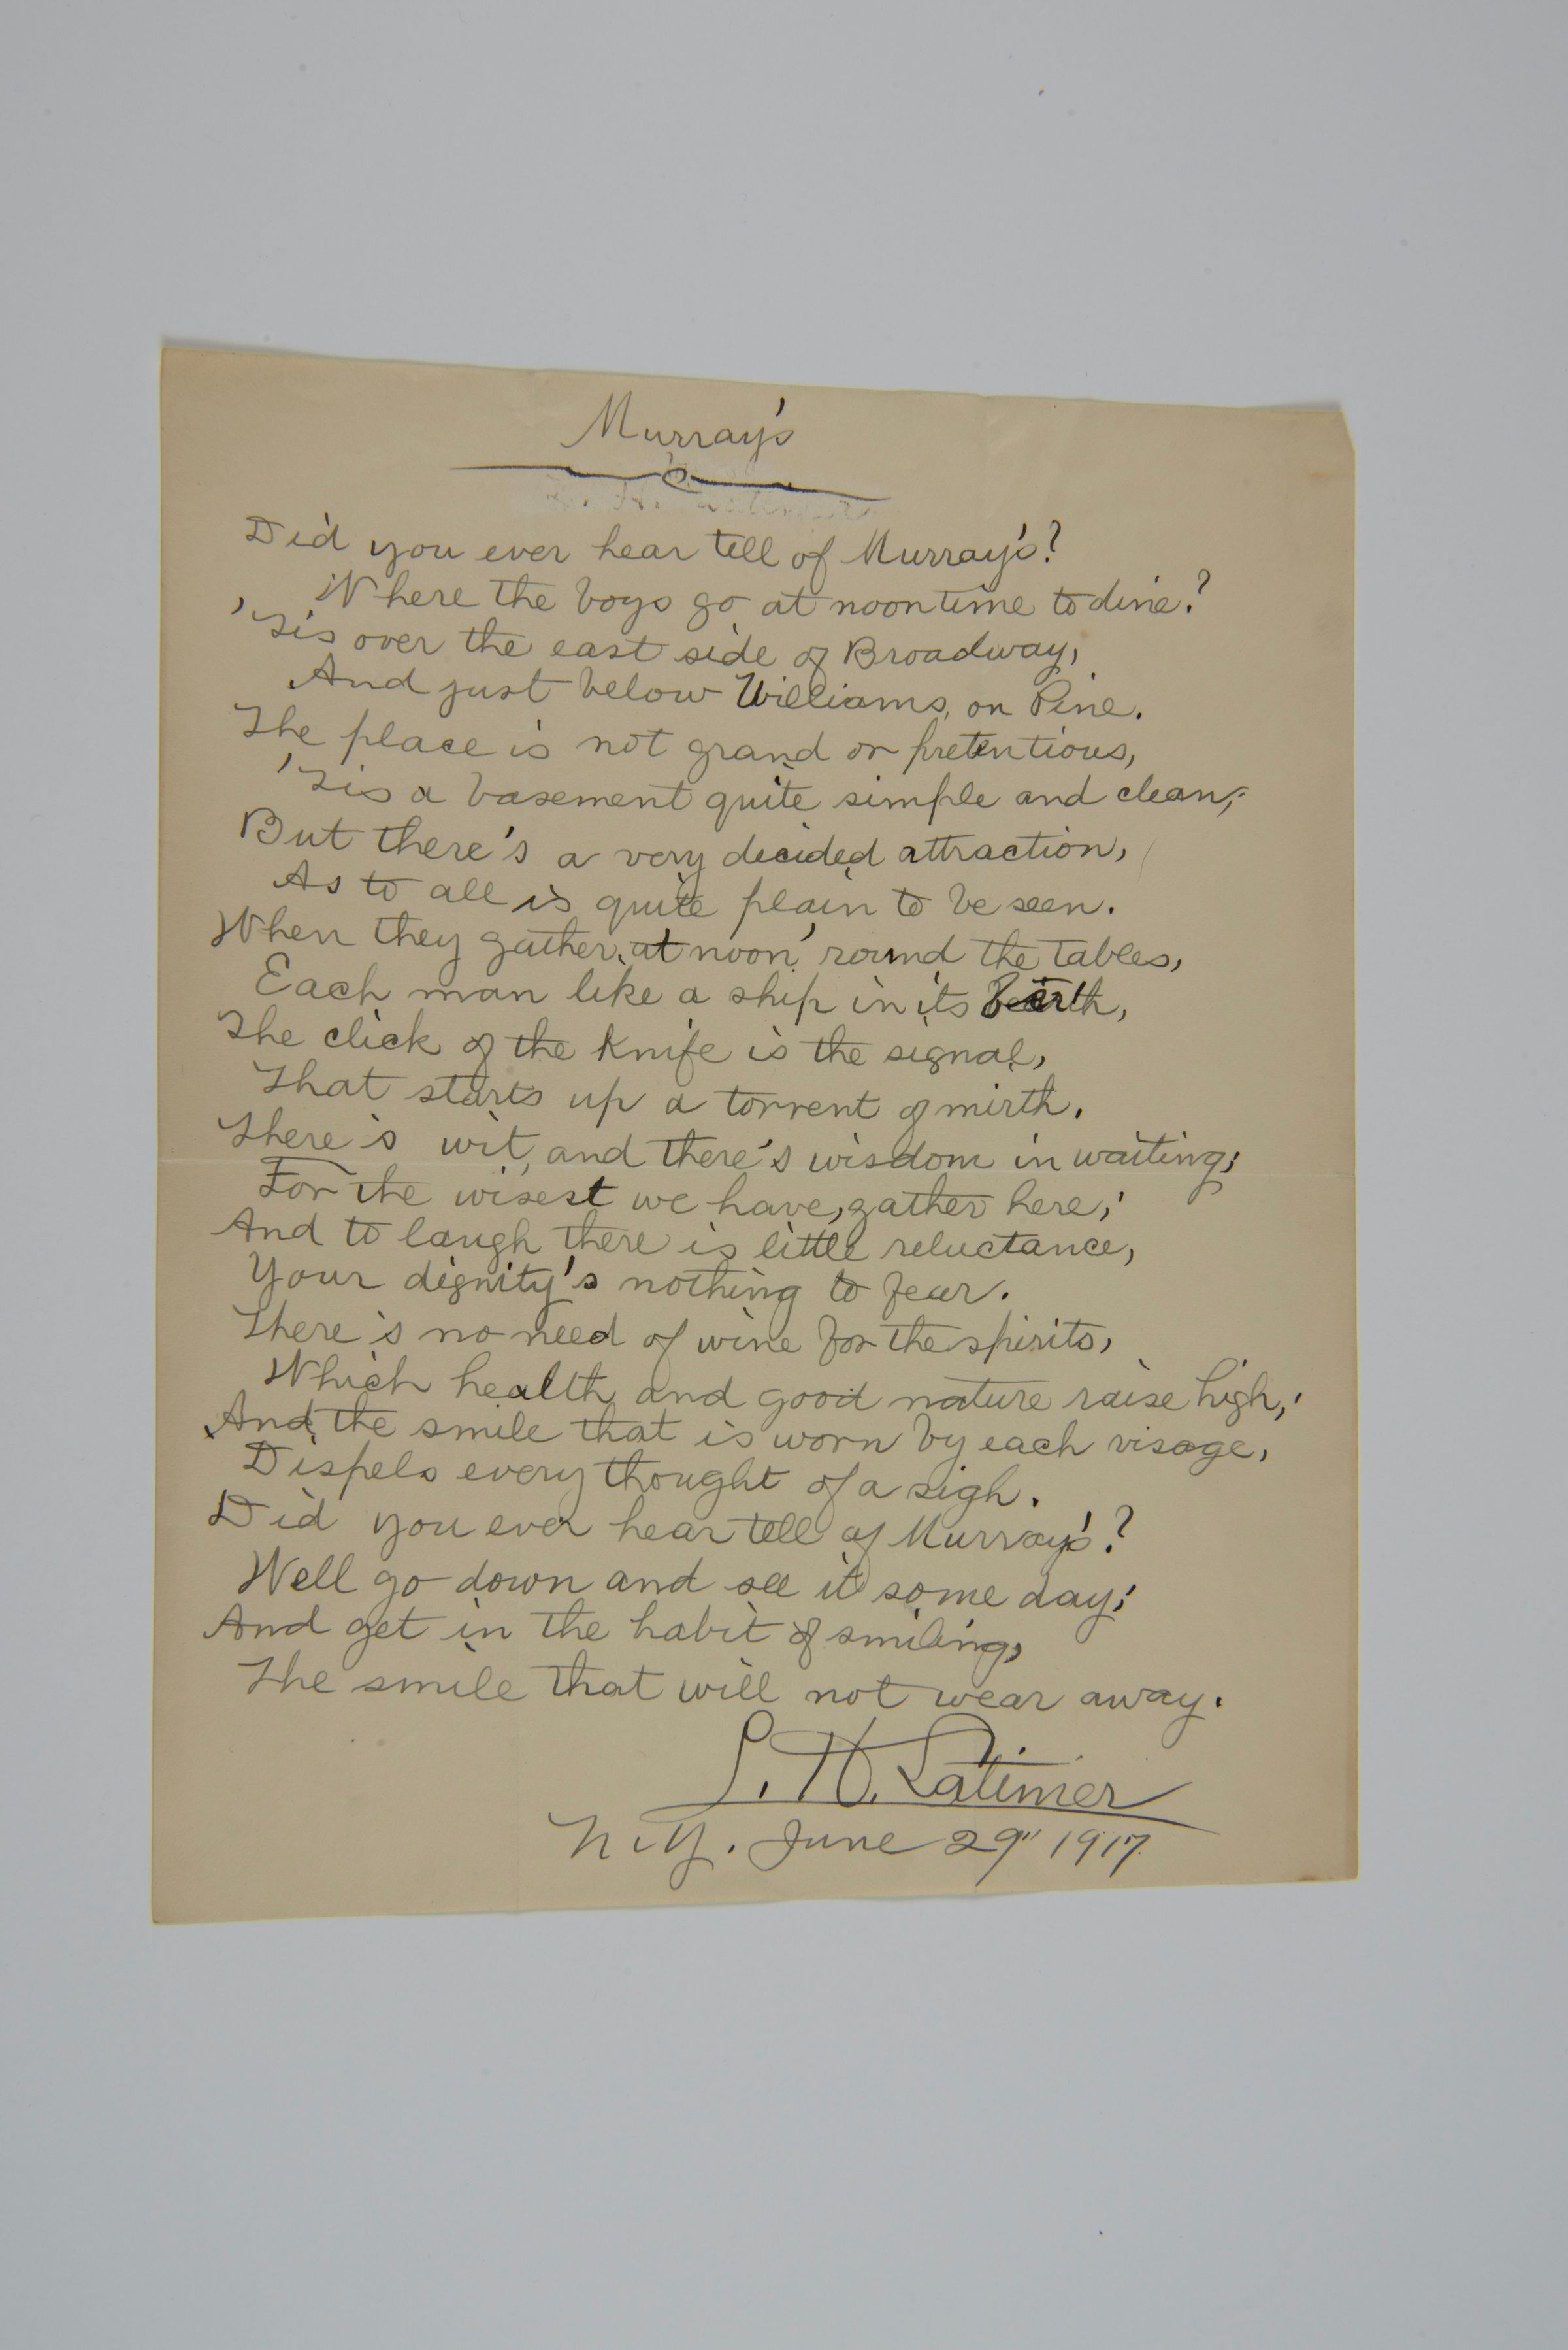 Murray's
Did you ever hear tell of Murray's?
Where the boys go at noontime to dine?
'Tis over the east side of Broadway,
And just below Williams, on Pine.
The place is not grand or pretentious,
'Tis a basement quite simple and clean;
But there's a very decided attraction,
As to all is quite plain to be seen.
When they gather, at noon, 'round the tables,
Each man like a ship in its berth,
The click of the knife is the signal,
That starts up a torrent of mirth.
There's wit, and there's wisdom in waiting;
For the wisest we have, gather here;
And to laugh there is little reluctance,
Your dignity's nothing to fear.
There's no need of wine for the spirits,
Which health and good nature raise high;
And the smile that is worn by each visage,
Dispels every thought of a sigh.
Did you ever hear tell of Murray's?
Well go down and see it some day;
And get in the habit of smiling,
The smile that will not wear away.
L. H. Latimer
N.Y. June 29" 1917